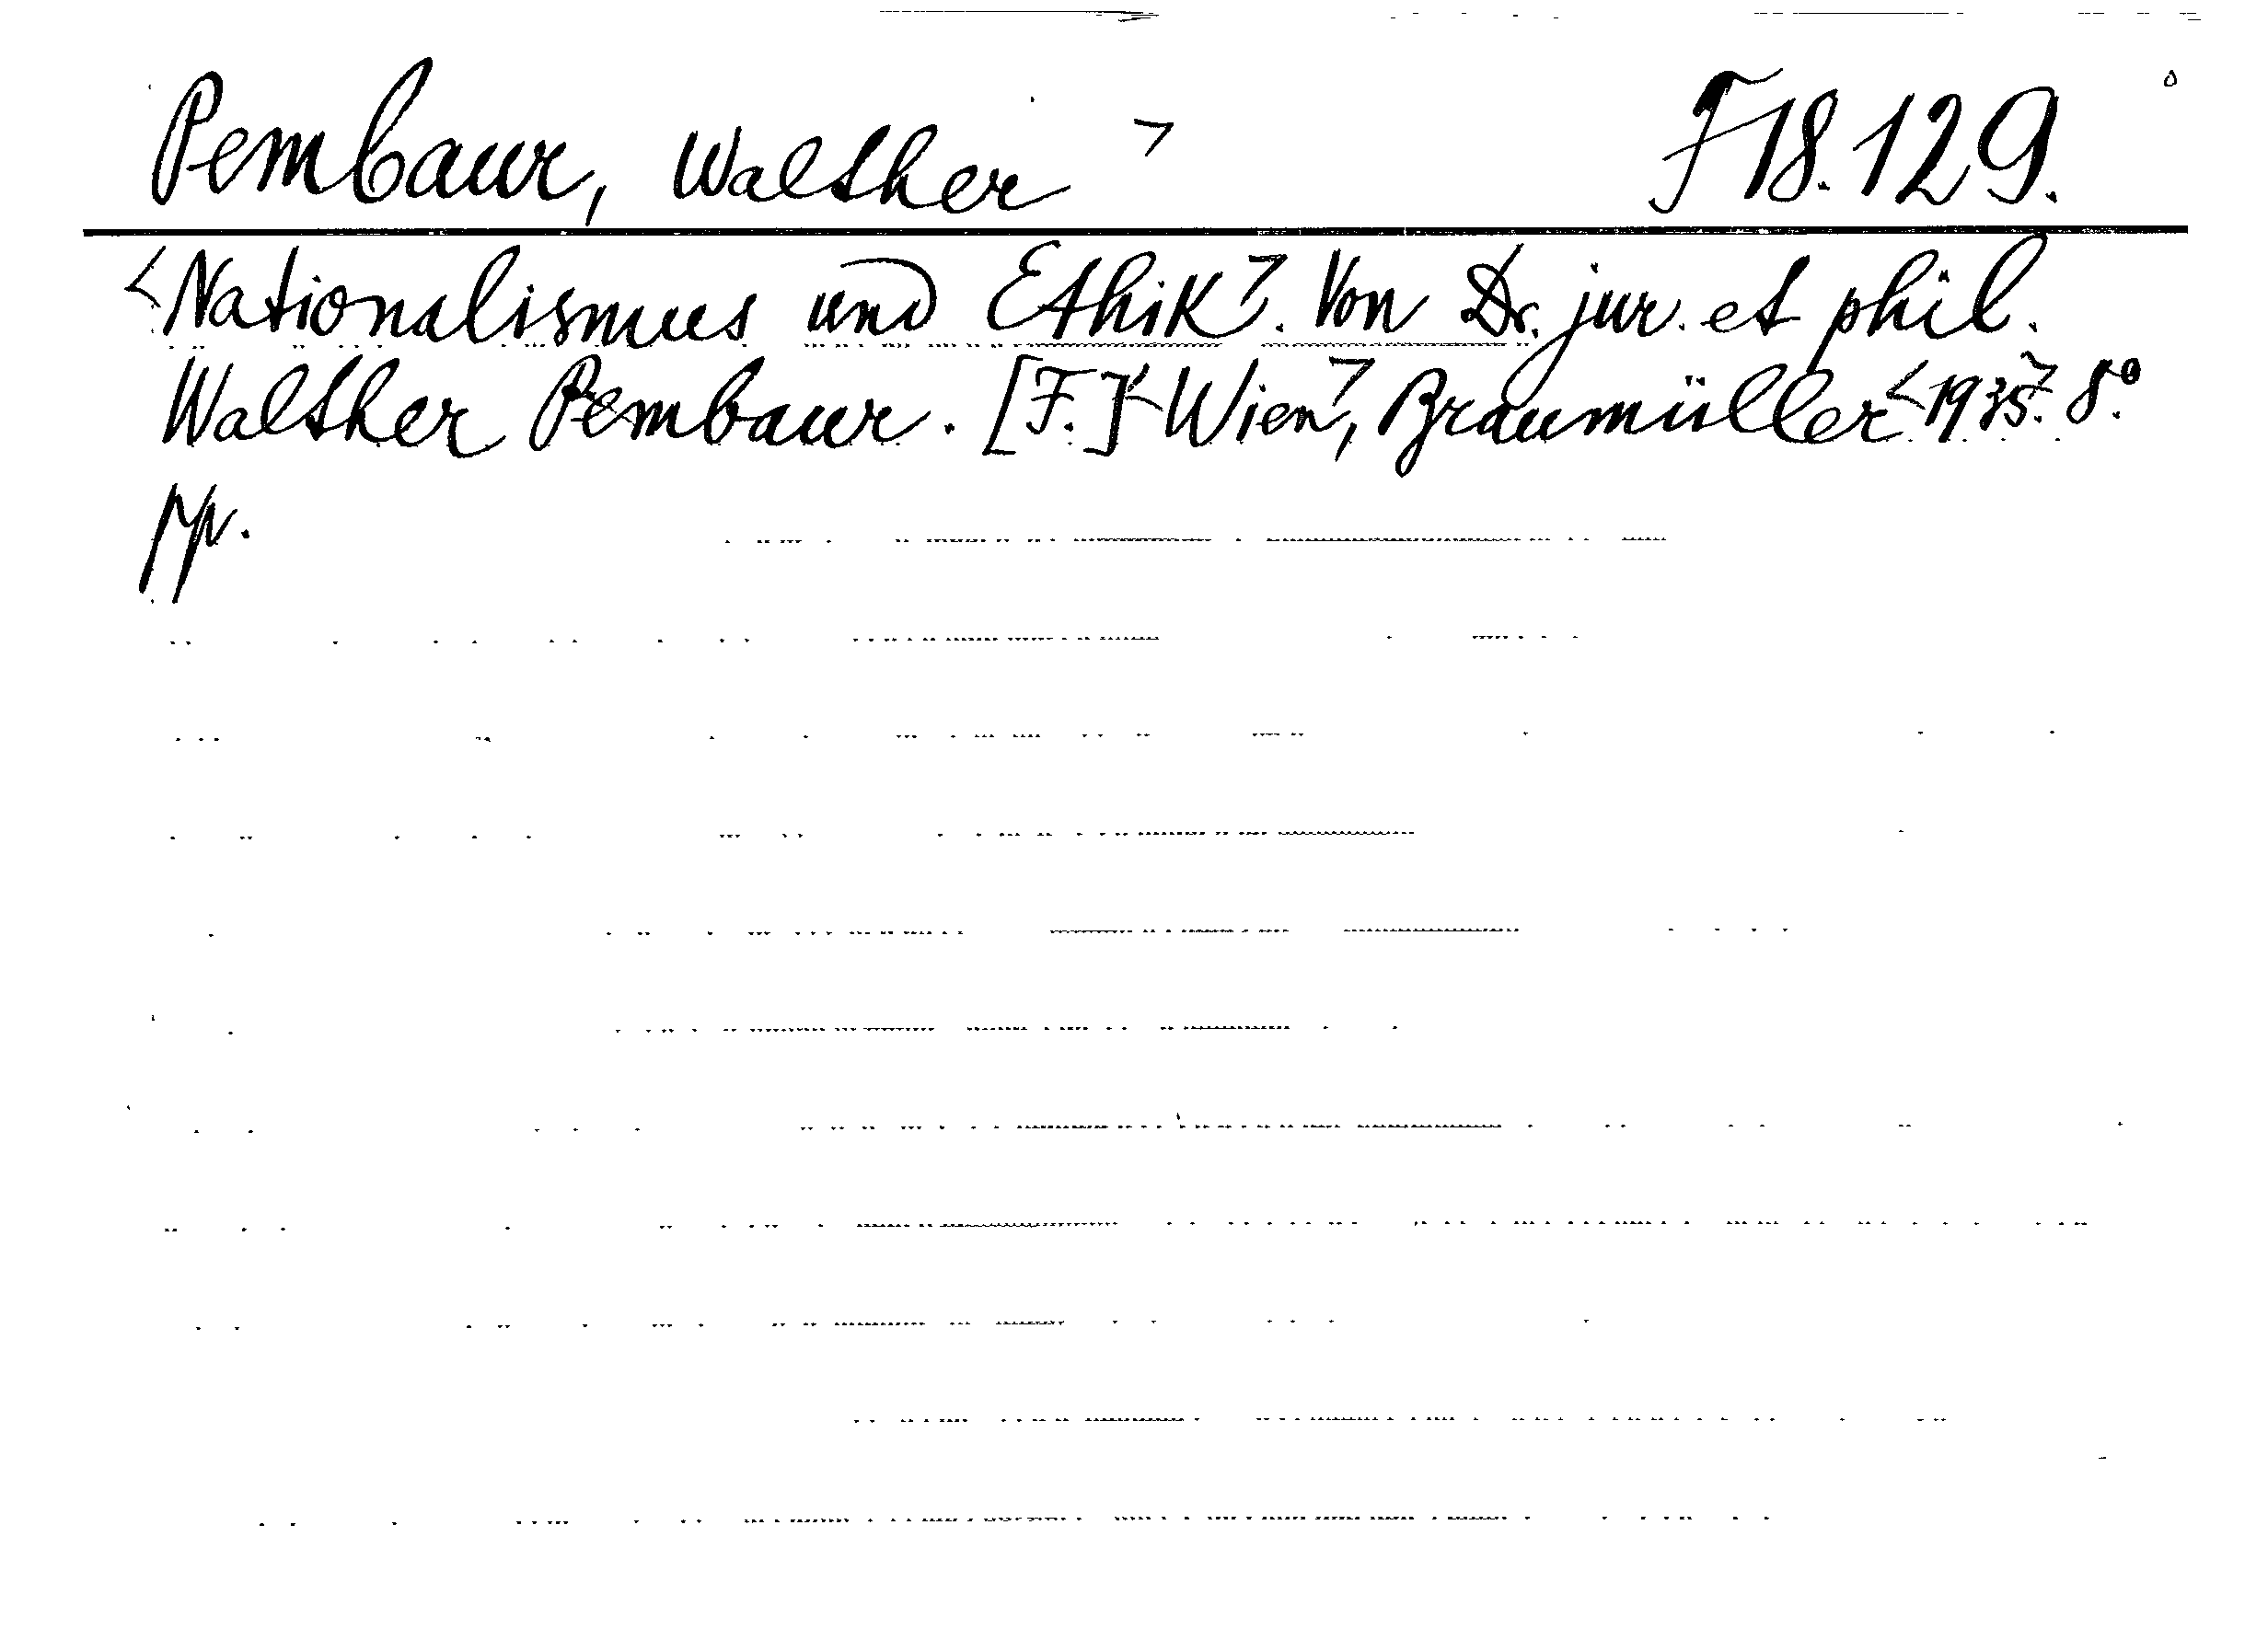 Pembaur, Walther ⌝ F 18.129.
<Nationalismus und Ethik⌝. Von Dr. jur. et phil.
Walther Pembaur. [F.] <Wien⌝, Braumüller <1935⌝. 8.º